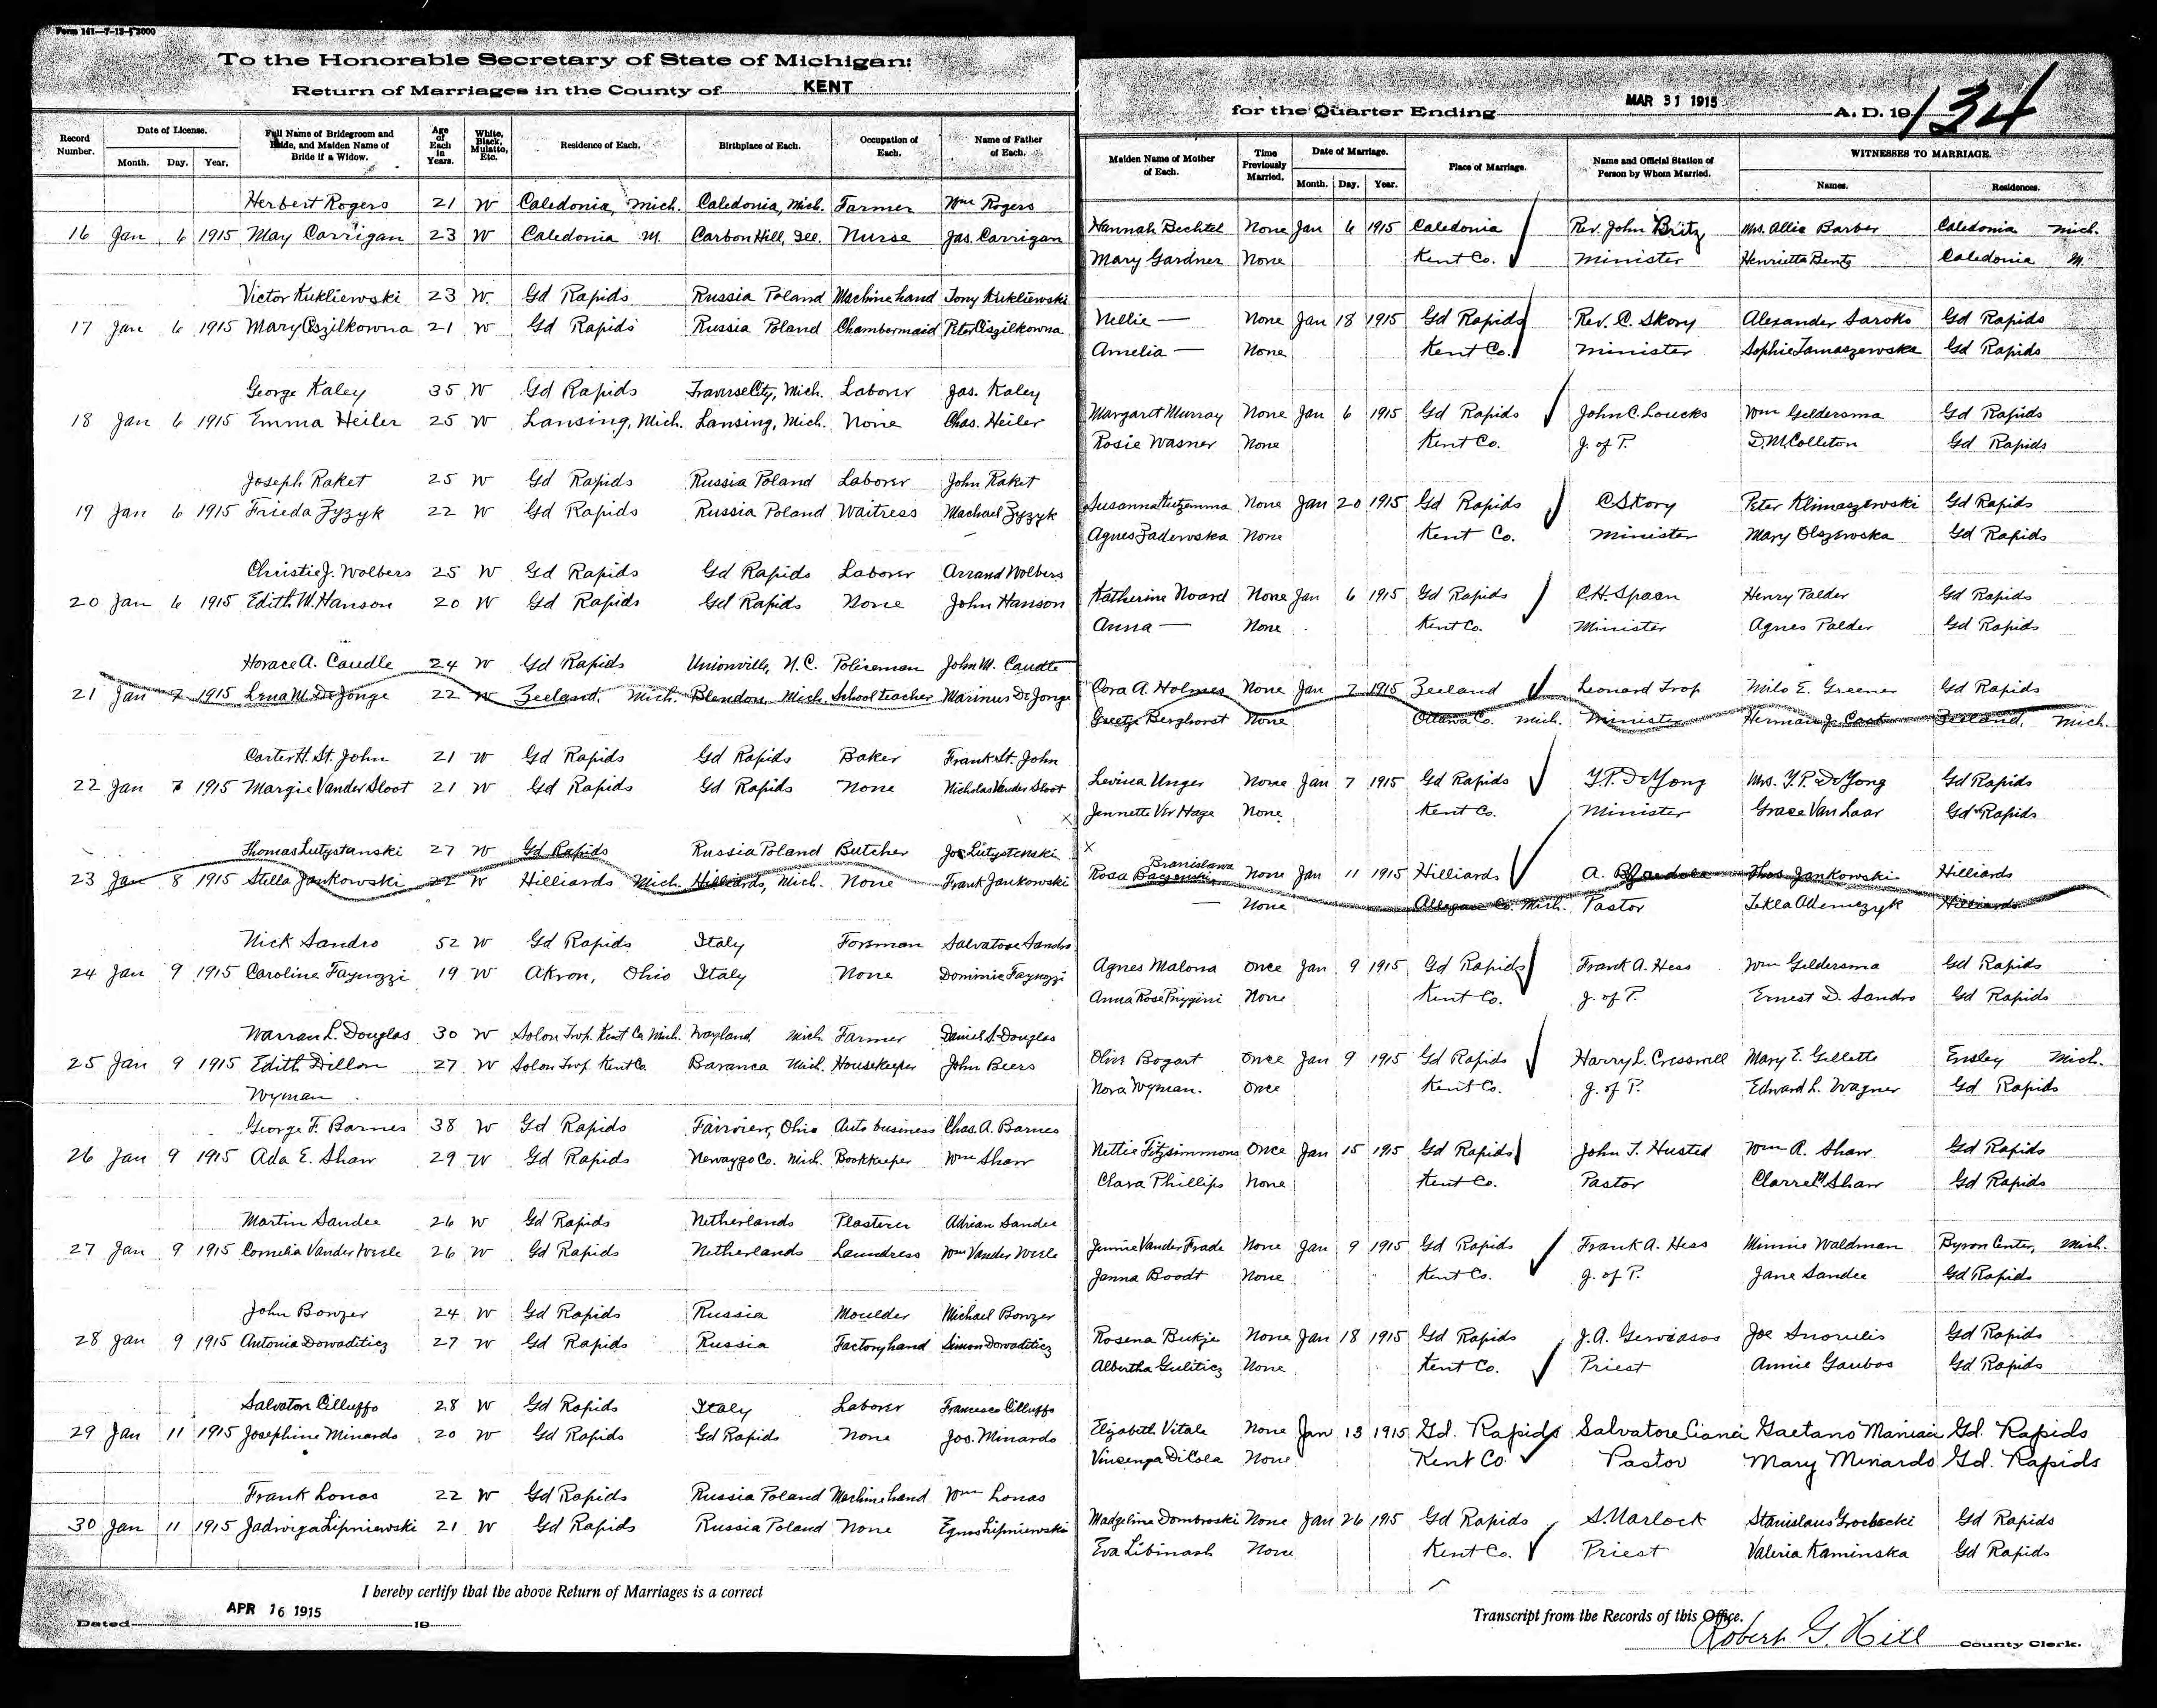 Form 141—7-13-13000
To the Honorable Secretary of State of Michigan:
Return of Marriages in the County of KENT
for the Quarter Ending MAR 31 1915 A. D. 19 134
Record Number. Date of License. Month. Day. Year. Full Name of Bridegroom and Bride, and Maiden Name of Bride if a Widow. Age of Each in Years. White, Black, Mulatto, Etc. Residence of Each. Birthplace of Each. Occupation of Each. Name of Father of Each.
Maiden Name of Mother of Each. Time Previously Married. Date of Marriage. Month. Day. Year. Place of Marriage. Name and Official Station of Person by Whom Married. WITNESSES TO MARRIAGE. Names. Residences.
Herbert Rogers 21 W Caledonia, Mich. Caledonia, Mich. Farmer Wm Rogers
Hannah Bechtel None Jan 6 1915 Caledonia Rev. John Britz Mrs. Allie Barber Caledonia Mich.
16 Jan 6 1915 May Corrigan 23 W Caledonia M. Carbon Hill, Ill. Nurse Jas. Carrigan
Mary Gardner None Kent Co. Minister Henrietta Bentz Caledonia M.
Victor Kukliewski 23 W. Gd Rapids Russia Poland Machine hand Tony Kukliewski
Nellie — None Jan 18 1915 Gd Rapids Rev. C. Skory Alexander Saroko Gd Rapids
17 Jan 6 1915 Mary Ciszilkowna 21 W Gd Rapids Russia Poland Chambermaid Peter Ciszilkowna
Amelia — None Kent Co. Minister Sophie Tamaszewska Gd Rapids
George Kaley 35 W Gd Rapids Traverse City, Mich. Laborer Jas. Kaley
Margaret Murray None Jan 6 1915 Gd Rapids John C. Loucks Wm Geldersma Gd Rapids
18 Jan 6 1915 Emma Heiler 25 W Lansing, Mich. Lansing, Mich. None Chas. Heiler
Rosie Wasner None Kent Co. J. of P. D.M. Colleton Gd Rapids
Joseph Raket 25 W Gd Rapids Russia Poland Laborer John Raket
Susanna None Jan 20 1915 Gd Rapids C Skory Peter Klimaszewski Gd Rapids
19 Jan 6 1915 Frieda Zyzyk 22 W Gd Rapids Russia Poland Waitress Machael Zyzyk
Agnes Zadewska None Kent Co. Minister Mary Olszewska Gd Rapids
Christie J. Wolbers 25 W Gd Rapids Gd Rapids Laborer Arrand Wolbers
Katherine Noard None Jan 6 1915 Gd Rapids C.H. Spaan Henry Palder Gd Rapids
20 Jan 6 1915 Edith W. Hanson 20 W Gd Rapids Gd Rapids None John Hanson
Anna — None Kent Co. Minister Agnes Palder Gd Rapids
Horace A. Caudle 24 W Gd Rapids Unionville, N.C. Policeman John M. Caudle
Cora A. Holmes None Jan 7 1915 Zeeland Leonard Trap Milo E. Greener Gd Rapids
21 Jan 7 1915 Lena M. De Jonge 22 W Zeeland, Mich. Blendon, Mich. School teacher Marinus De Jonge
Greetje Berghorst None Ottawa Co. Mich. Minister Herman J. Cook Zeeland, Mich.
Carter H. St. John 21 W Gd Rapids Gd Rapids Baker Frank St. John
Levina Unger None Jan 7 1915 Gd Rapids Y.P. De Jong Mrs. Y.P. De Jong Gd Rapids
22 Jan 7 1915 Margie Vander Sloot 21 W Gd Rapids Gd Rapids None Nicholas Vander Sloot
Jennette Ver Hage None Kent Co. Minister Grace Van Laar Gd Rapids
Thomas Lutystanski 27 W Gd Rapids Russia Poland Butcher Joe Lutystenski
Rosa Branislawa None Jan 11 1915 Hilliards A. Thos Jankowski Hilliards
23 Jan 8 1915 Stella Jankowski 22 W Hilliards Mich. Hilliards, Mich. None Frank Jankowski
— None Allegan Co. Mich. Pastor Tekla Ademczyk Hilliards
Nick Sandro 52 W Gd Rapids Italy Forman Salvatore Sandro
Agnes Malona Once Jan 9 1915 Gd Rapids Frank A. Hess Wm Geldersma Gd Rapids
24 Jan 9 1915 Caroline Faynozzi 19 W Akron, Ohio Italy None Dominic Faynozzi
Anna Rose None Kent Co. J. of P. Ernest D. Sandro Gd Rapids
Warran L. Douglas 30 W Solon Twp. Kent Co Mich. Wayland Mich. Farmer Daniel S. Douglas
Olive Bogart Once Jan 9 1915 Gd Rapids Harry L. Cresswell Mary E. Gillette Ensley Mich.
25 Jan 9 1915 Edith Dillon 27 W Solon Twp. Kent Co. Baranca Mich. Housekeeper John Beers
Nora Wyman. Once Kent Co. J. of P. Edward L. Wagner Gd Rapids
Wyman
George F. Barnes 38 W Gd Rapids Fairview, Ohio Auto business Chas. A. Barnes
Nettie Fitzsimmons Once Jan 15 1915 Gd Rapids John T. Husted Wm A. Shaw Gd Rapids
26 Jan 9 1915 Ada E. Shaw 29 W Gd Rapids Newaygo Co. Mich. Bookkeeper Wm Shaw
Clara Phillips None Kent Co. Pastor Clarrel Shaw Gd Rapids
Martin Sandee 26 W Gd Rapids Netherlands Plasterer Adrian Sandee
Jennie Vander Frade None Jan 9 1915 Gd Rapids Frank A. Hess Minnie Waldman Byron Center, Mich.
27 Jan 9 1915 Cornelia Vander Weele 26 W Gd Rapids Netherlands Laundress Wm Vander Weele
Janna Boodt None Kent Co. J. of P. Jane Sandee Gd Rapids
John Bowzer 24 W Gd Rapids Russia Moulder Michael Bowzer
Rosena Bukje None Jan 18 1915 Gd Rapids J.A. Joe Snorulis Gd Rapids
28 Jan 9 1915 Antonia Dowaditicz 27 W Gd Rapids Russia Factory hand Simon Dowaditicz
Albertha Guliticz None Kent Co. Priest Annie Gaubos Gd Rapids
Salvatore Cilluffo 28 W Gd Rapids Italy Laborer Francesco Cilluffo
Elizabeth Vitale None Jan 13 1915 Gd. Rapids Salvatore Cianci Gaetano Maniaci Gd. Rapids
29 Jan 11 1915 Josephine Minardo 20 W Gd Rapids Gd Rapids None Jos. Minardo
Vincenza DiCola None Kent Co Pastor Mary Minardo Gd. Rapids
Frank Lonas 22 W Gd Rapids Russia Poland Machine hand Wm Lonas
Madgelina Dombroski None Jan 26 1915 Gd Rapids S. Marlock Stanislaus Grochocki Gd Rapids
30 Jan 11 1915 Jadwiga Lipniewski 21 W Gd Rapids Russia Poland None Egnos Lipniewski
Eva Libinash None Kent Co. Priest Valeria Kaminska Gd Rapids
I hereby certify that the above Return of Marriages is a correct Transcript from the Records of this Office.
Dated APR 16 1915 19
Robert G. Hill County Clerk.